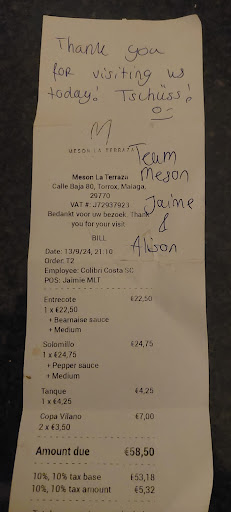 Thank you
for visiting us
today! Tschüss!
M
MESON LA TERRAZA
Team
Meson
Jaime
&
Alison
Meson La Terraza
Calle Baja 80, Torrox, Malaga,
29770
VAT #: J72937923
Bedankt voor uw bezoek. Thank
you for your visit
BILL
Date: 13/9/24, 21:10
Order: T2
Employee: Colibri Costa SC
POS: Jaimie MLT
Entrecote €22,50
1 x €22,50
+ Bearnaise sauce
+ Medium
Solomillo €24,75
1 x €24,75
+ Pepper sauce
+ Medium
Tanque €4,25
1 x €4,25
Copa Vilano €7,00
2 x €3,50
Amount due €58,50
10%, 10% tax base €53,18
10%, 10% tax amount €5,32